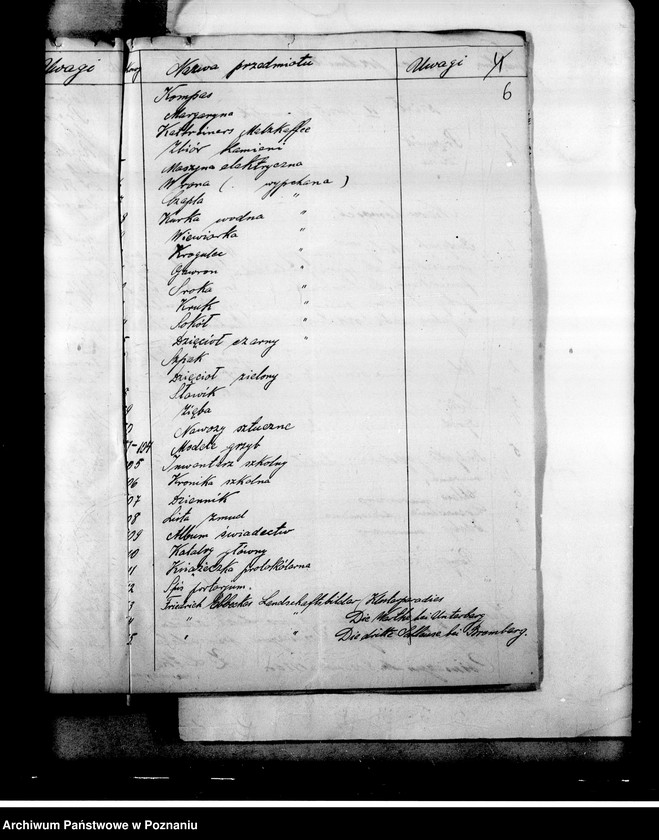 Uwagi
Nazwa przedmiotu
Uwagi
6
Kompas
Margaryna
Kathreiners Malzkaffee
Zbiór kamieni
Maszyna elektryczna
Wrona (. wypchana)
Czapla "
8 Kurka wodna "
Wiewiórka "
Krogulec "
Gawron "
Sroka "
Kruk "
Sokół "
Dzięcioł czarny "
Szpak
Dzięcioł zielony
Słowik
Zięba
Nawozy sztuczne
-104 Modele grzyb
05 Inwentarz szkolny
06 Kronika szkolna
07 Dziennik
08 Lista żmud
09 Album świadectw
10 Katalog główny
11 Książeczka protokólarna
2 Spis
3 Friedrich Landschaftsbilder, Klosterparadies
4 " " Die Warthe bei Unterberg
5 " " Die Schleuse bei Bromberg.
Archiwum Państwowe w Poznaniu